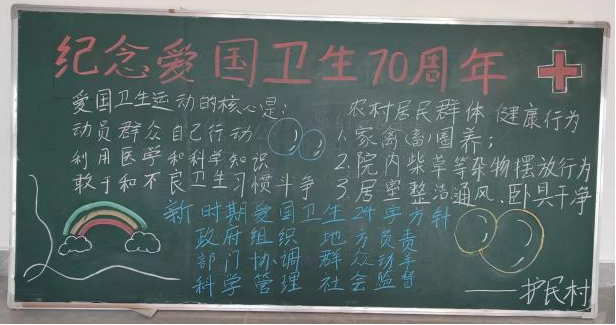 纪念爱国卫生70周年
爱国卫生运动的核心是:
动员群众自己行动
利用医学和科学知识
敢于和不良卫生习惯斗争
农村居民群体健康行为
1.家禽畜圈养;
2.院内柴草等杂物摆放行为
3.居室整洁通风、卧具干净
新时期爱国卫生24字方针
政府组织 地方负责
部门协调 群众动手
科学管理 社会监督
——护民村